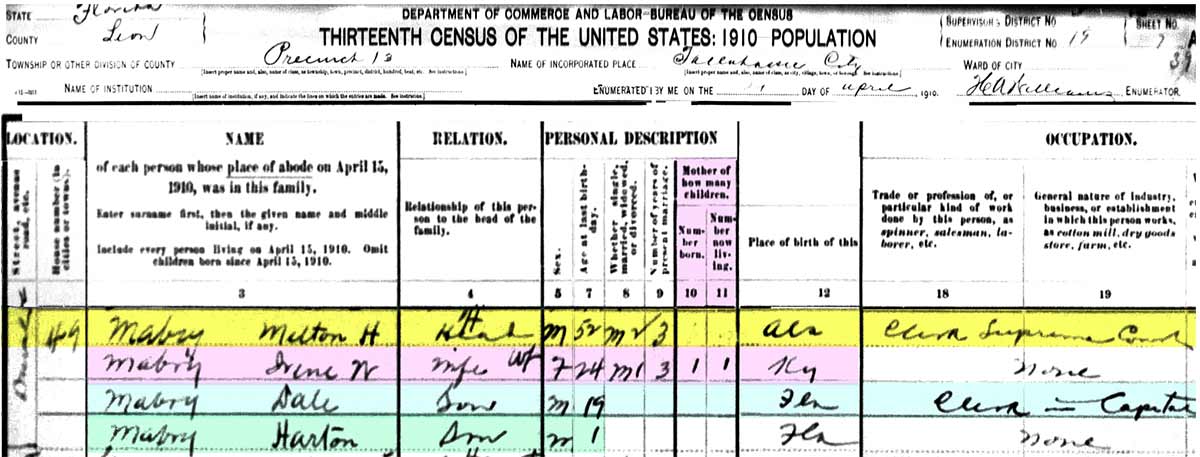 STATE Florida
COUNTY Leon
DEPARTMENT OF COMMERCE AND LABOR–BUREAU OF THE CENSUS
THIRTEENTH CENSUS OF THE UNITED STATES: 1910 POPULATION
SUPERVISOR'S DISTRICT NO
ENUMERATION DISTRICT NO 19
SHEET NO
TOWNSHIP OR OTHER DIVISION OF COUNTY Precinct 13
NAME OF INCORPORATED PLACE Tallahassee City
WARD OF CITY
NAME OF INSTITUTION
[Insert name of institution, if any, and indicate the lines on which the entries are made. See instructions.]
ENUMERATED BY ME ON THE DAY OF April, 1910.
H A Williams ENUMERATOR
LOCATION.
Street, avenue, road, etc.
House number (in cities or towns).
NAME
of each person whose place of abode on April 15, 1910, was in this family.
Enter surname first, then the given name and middle initial, if any.
Include every person living on April 15, 1910. Omit children born since April 15, 1910.
RELATION.
Relationship of this person to the head of the family.
PERSONAL DESCRIPTION
Sex.
Age at last birthday.
Whether single, married, widowed, or divorced.
Number of years of present marriage.
Mother of how many children.
Number born.
Number now living.
Place of birth of this
OCCUPATION.
Trade or profession of, or particular kind of work done by this person, as spinner, salesman, laborer, etc.
General nature of industry, business, or establishment in which this person works, as cotton mill, dry goods store, farm, etc.
3 4 5 7 8 9 10 11 12 18 19
49 Mabry Milton H Head M 52 M2 3 Ala Clerk Supreme Court
Mabry Irene W wife F 24 M1 3 1 1 Ky None
Mabry Dale Son M 19 Fla Clerk in Capitol
Mabry Harton Son M 1 Fla None